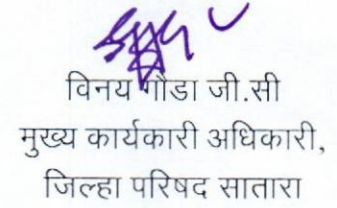 विनय गौडा जी.सी
मुख्य कार्यकारी अधिकारी,
जिल्हा परिषद सातारा